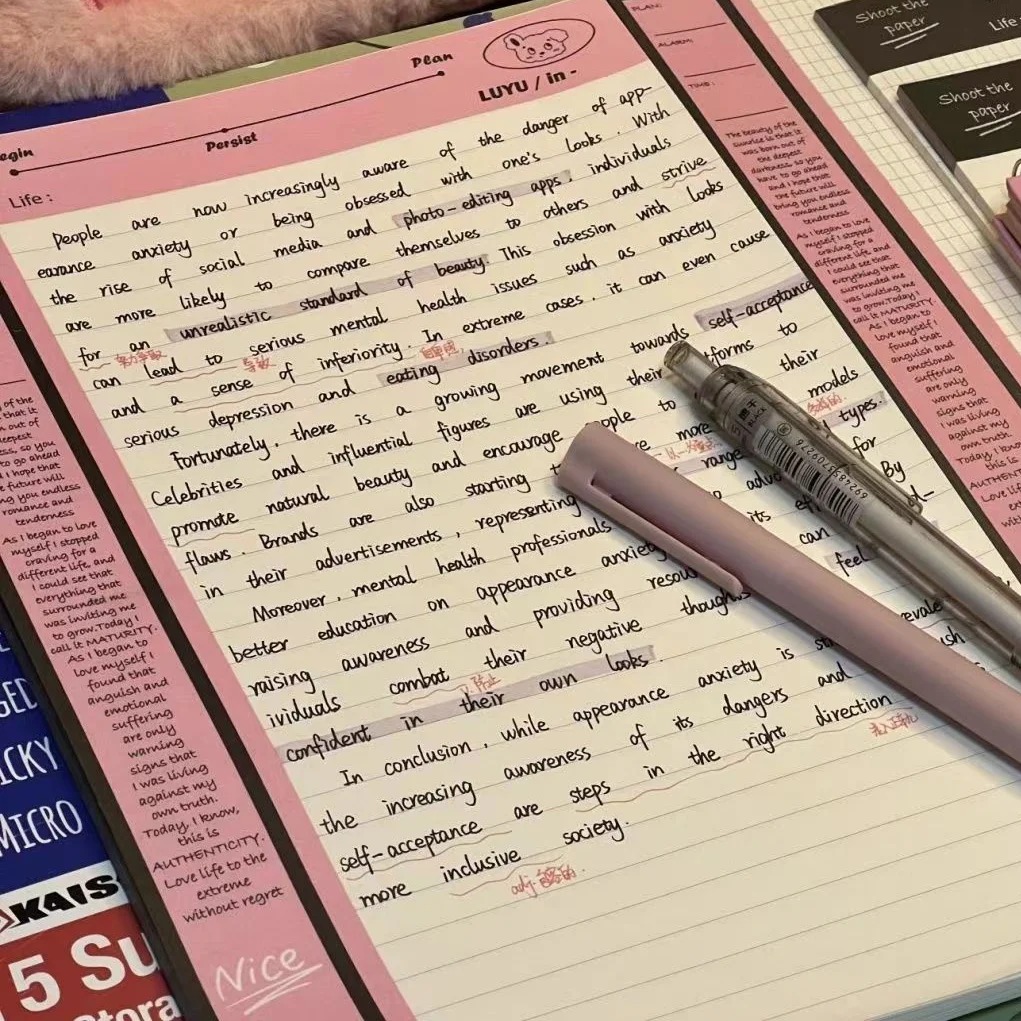 Plan
Persist
egin
LUYU / in -
Life :
People are now increasingly aware of the danger of app-
earance anxiety or being obsessed with one's looks. With
the rise of social media and photo-editing apps, individuals
are more likely to compare themselves to others and strive
for an unrealistic standard of beauty. This obsession with looks
努力争取
can lead to serious mental health issues such as anxiety
导致
and a sense of inferiority. In extreme cases, it can even cause
serious depression and eating disorders.
Fortunately, there is a growing movement towards self-acceptance
Celebrities and influential figures are using their tforms to
promote natural beauty and encourage ople to their
flaws. Brands are also starting more models
in their advertisements, representing range types.
Moreover, mental health professionals advo for
better education on appearance anxiety its ef By
raising awareness and providing resou can
ividuals combat their negative thoughts feel
confident in their own looks.
In conclusion, while appearance anxiety is revale
the increasing awareness of its dangers and
self-acceptance are steps in the right direction
more inclusive society.
adj.
PLAN:
ALARM:
TIME:
The beauty of the
sunrise is that it
was born out of
the deepest
darkness, so you
have to go ahead
and I hope that
the future will
bring you endless
romance and
tenderness
As I began to love
myself I stopped
craving for a
different life, and
I could see that
everything that
surrounded me
was inviting me
to grow. Today I
call it MATURITY.
As I began to
love myself I
found that
anguish and
emotional
suffering
are only
warning
signs that
I was living
against my
own truth.
Today, I know,
this is
AUTHENTI
Love life
ext
with
of the
that it
n out of
eepest
ess, so you
to go ahead
hope that
e future will
ng you endless
romance and
tenderness
As I began to love
myself I stopped
craving for a
different life, and
I could see that
everything that
surrounded me
was inviting me
to grow. Today I
call it MATURITY.
As I began to
love myself I
found that
anguish and
emotional
suffering
are only
warning
signs that
I was living
against my
own truth.
Today, I know,
this is
AUTHENTICITY.
Love life to the
extreme
without regret
Nice
Shoot the
paper
Life
Shoot the
paper
BLACK
GED
ICKY
MICRO
KAIS
5 Su
tora